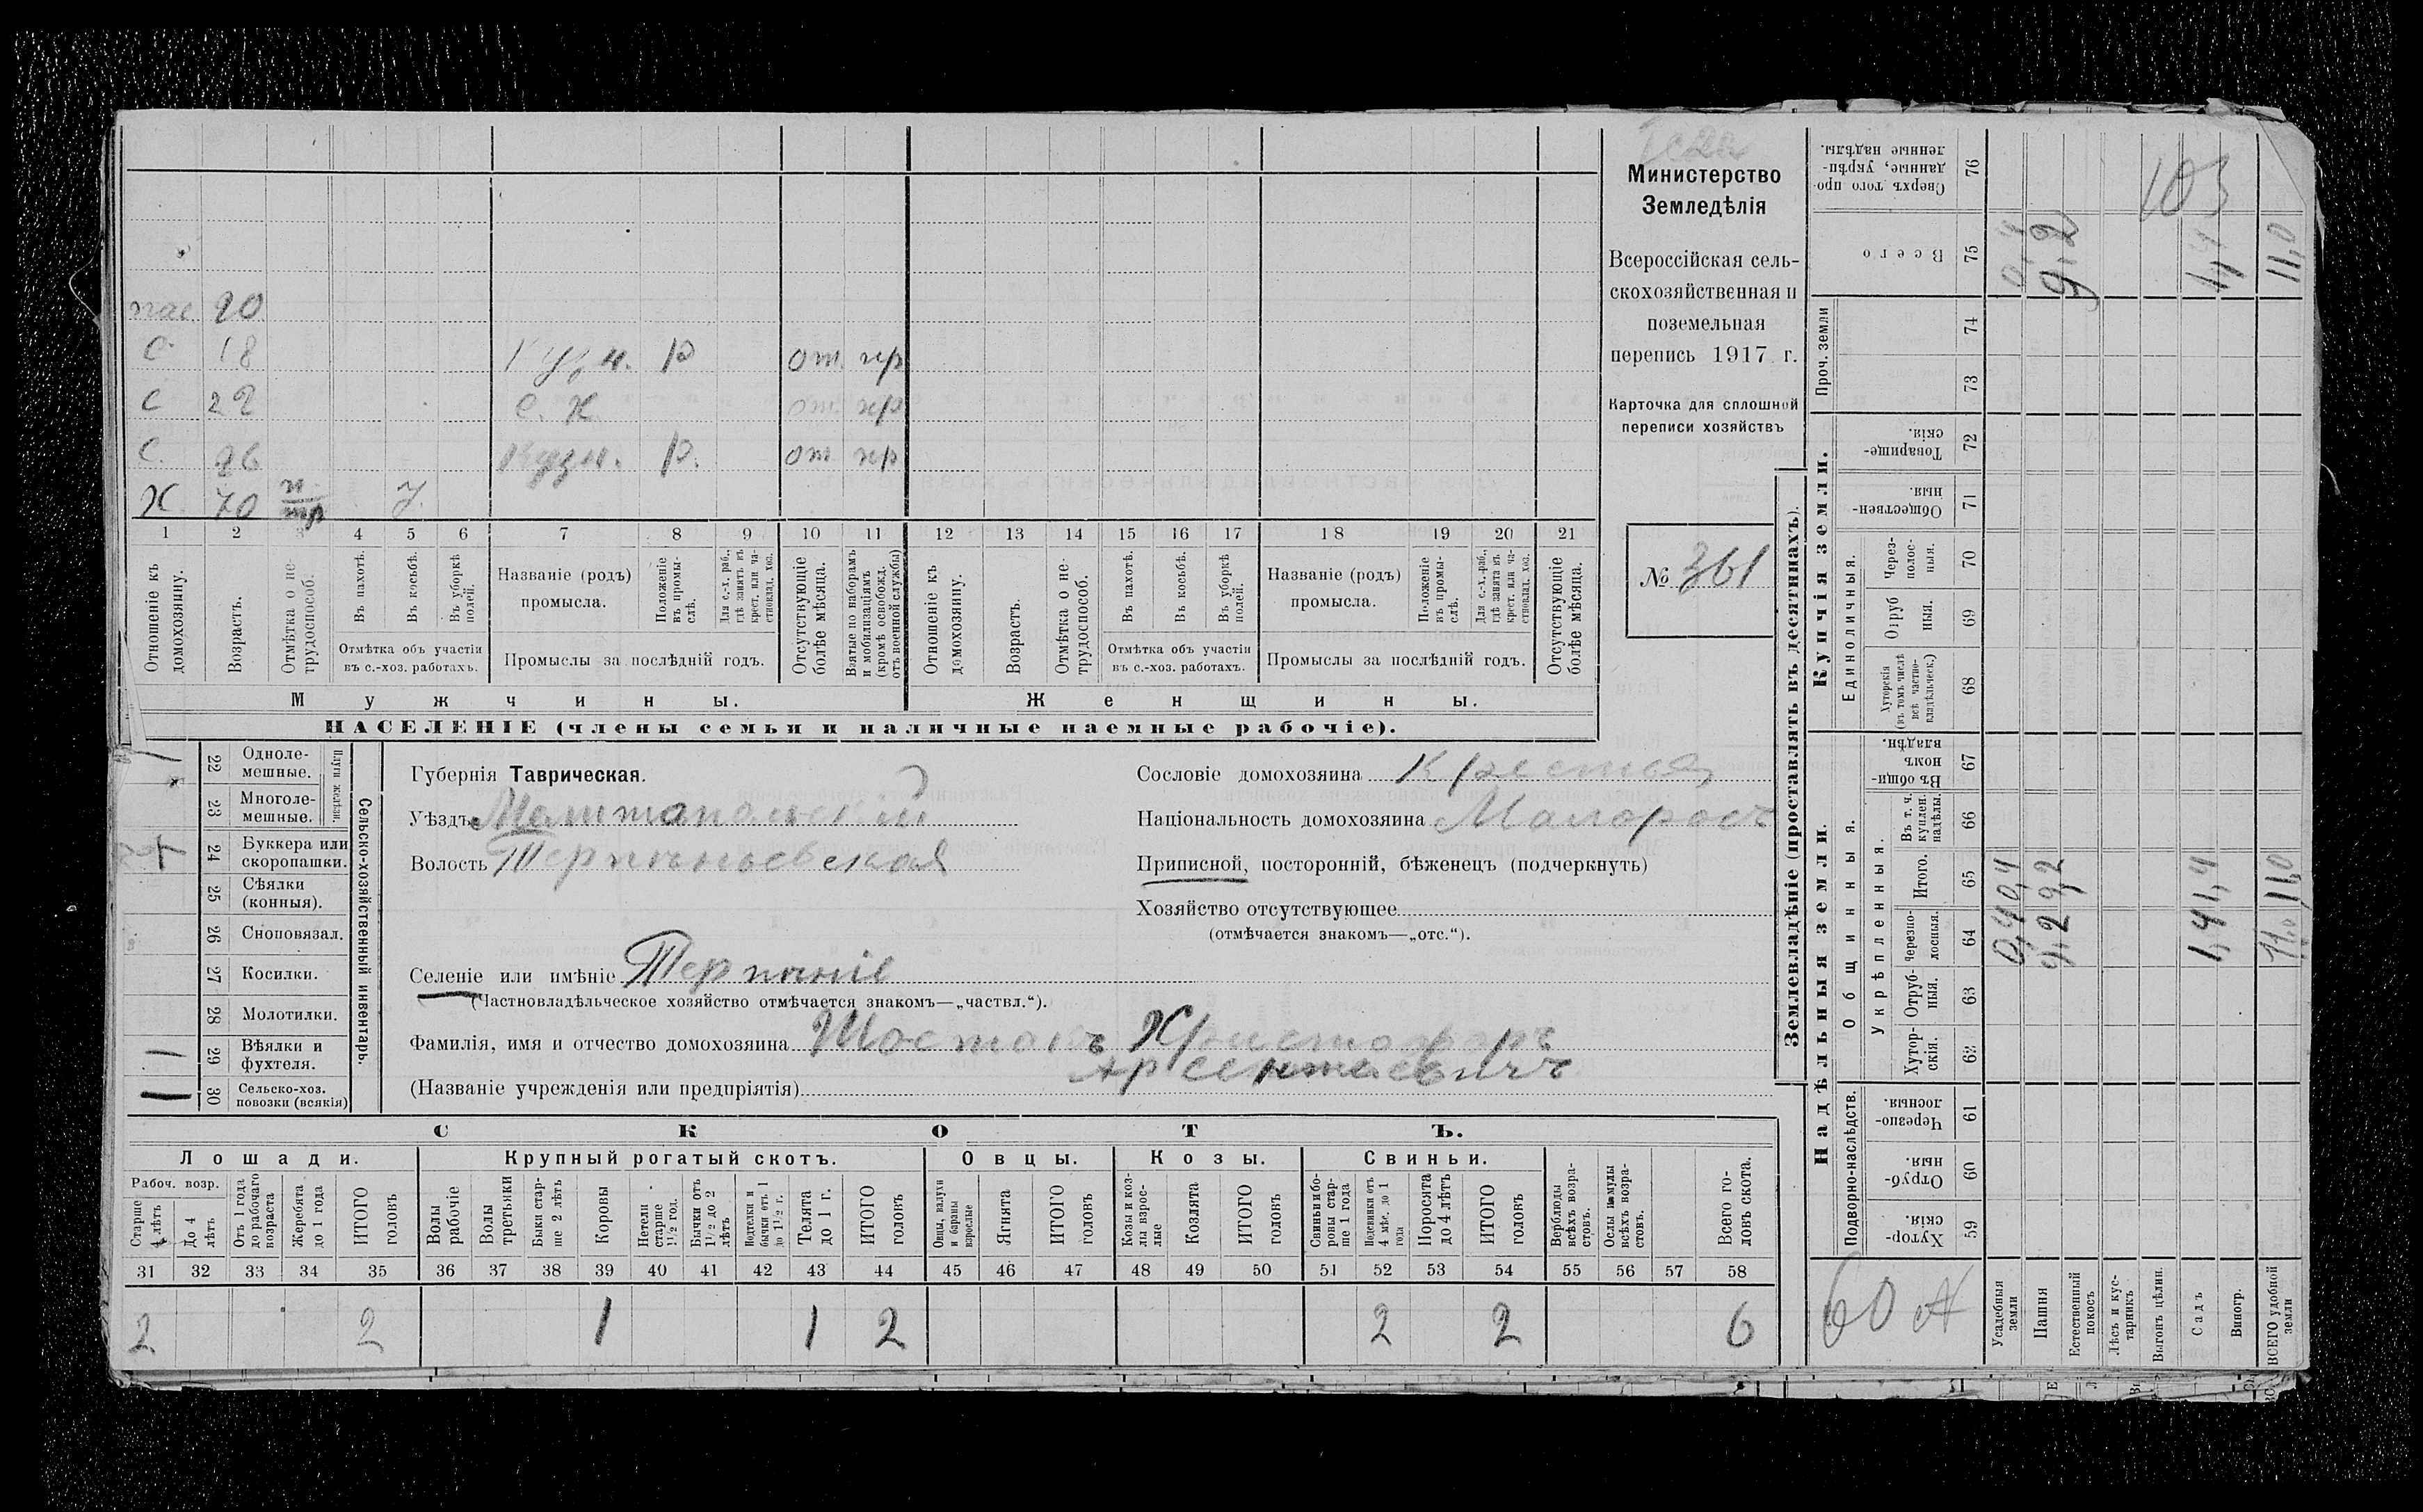 Министерство
Земледѣлія
Всероссійская сель-
скохозяйственная и
поземельная
перепись 1917 г.
Карточка для сплошной
переписи хозяйствъ
№ 361
пас 20
с. 18 Кузн. р от. нр
с 22 с. х от. нр
с. 26 Кузн. р. от нр
х 70 у
1 2 3 4 5 6 7 8 9 10 11 12 13 14 15 16 17 18 19 20 21
Отношеніе къ домохозяину.
Возрастъ.
Отмѣтка о не-трудоспособ.
Въ пахотѣ.
Въ косьбѣ.
Въ уборкѣ полей.
Отмѣтка объ участіи въ с.-хоз. работахъ.
Названіе (родъ) промысла.
Положеніе въ промы-слѣ.
Для с.-х. раб., гдѣ занятъ въ крест. или ча-стновлад. хоз.
Промыслы за послѣдній годъ.
Отсутствующіе болѣе мѣсяца.
Взятые по наборамъ и мобилизаціямъ (кромѣ освобожд. отъ военной службы)
Отношеніе къ домохозяину.
Возрастъ.
Отмѣтка о не-трудоспособ.
Въ пахотѣ.
Въ косьбѣ.
Въ уборкѣ полей.
Отмѣтка объ участіи въ с.-хоз. работахъ.
Названіе (родъ) промысла.
Положеніе въ промы-слѣ.
Для с.-х. раб., гдѣ занята въ крест. или ча-стновлад. хоз.
Промыслы за послѣдній годъ.
Отсутствующіе болѣе мѣсяца.
Мужчины. Женщины.
НАСЕЛЕНІЕ (члены семьи и наличные наемные рабочіе).
22 Одноле-мешные.
23 Многоле-мешные.
Плуги желѣзн.
24 Буккера или скоропашки.
25 Сѣялки (конныя).
26 Сноповязал.
27 Косилки.
28 Молотилки.
29 Вѣялки и фухтеля.
30 Сельско-хоз. повозки (всякія)
Сельско-хозяйственный инвентарь.
Губернія Таврическая.
Уѣздъ Мелитопольскій
Волость Терпѣньевская
Селеніе или имѣніе Терпѣніе
(Частновладѣльческое хозяйство отмѣчается знакомъ—„частвл.“).
Фамилія, имя и отчество домохозяина Шостакъ Христофоръ
Арсентьевичъ
(Названіе учрежденія или предпріятія)
Сословіе домохозяина Крестья
Національность домохозяина Малороссъ
Приписной, посторонній, бѣженецъ (подчеркнуть)
Хозяйство отсутствующее
(отмѣчается знакомъ—„отс.“).
СКОТЪ.
Лошади. Крупный рогатый скотъ. Овцы. Козы. Свиньи.
Рабоч. возр.
Старше 4 лѣтъ
До 4 лѣтъ
Отъ 1 года до рабочаго возраста
Жеребята до 1 года
ИТОГО головъ
Волы рабочіе
Волы третьяки
Быки стар-ше 2 лѣтъ
Коровы
Нетели старше 1½ год.
Бычки отъ 1½ до 2 лѣтъ
Подтелки и бычки отъ 1 до 1½ г.
Телята до 1 г.
ИТОГО головъ
Овцы, валухи и бараны взрослые
Ягнята
ИТОГО головъ
Козы и коз-лы взрос-лые
Козлята
ИТОГО головъ
Свиньи и бо-ровы стар-ше 1 года
Подсвинки отъ 4 мѣс. до 1 года
Поросята до 4 лѣтъ
ИТОГО головъ
Верблюды всѣхъ возра-стовъ.
Ослы и мулы всѣхъ возра-стовъ.
Всего го-ловъ скота.
31 32 33 34 35 36 37 38 39 40 41 42 43 44 45 46 47 48 49 50 51 52 53 54 55 56 57 58
2 2 1 1 2 2 2 6
Землевладѣніе (проставлять въ десятинахъ).
Надѣльныя земли. Купчія земли. Проч. земли
Подворно-наслѣдств. Общинныя. Укрѣпленныя. Единоличныя.
Хутор-скія. 59
Отруб-ныя. 60
Черезпо-лосныя. 61
Хутор-скія. 62
Отруб-ныя. 63
Черезпо-лосныя. 64
Итого. 65
Въ т. ч. куплен. надѣлы. 66
Въ общи-номъ владѣн. 67
Хуторскія (въ томъ числѣ всѣ частно-владѣльческ.) 68
Отруб ныя. 69
Через-полос-ныя. 70
Обществен-ныя. 71
Товарище-скія. 72
73 74
Всего 75
Сверхъ того про-данные, укрѣп-ленные надѣлы. 76
Усадебныя земли 0,4 0,4 0,4
Пашня 9,2 9,2 9,2
Естественный покосъ
Лѣсъ и кус-тарникъ
Выгонъ цѣлин.
Садъ 1,4 1,4 1,4
Виногр.
ВСЕГО удобной земли 11,0 11,0 11,0
103
60